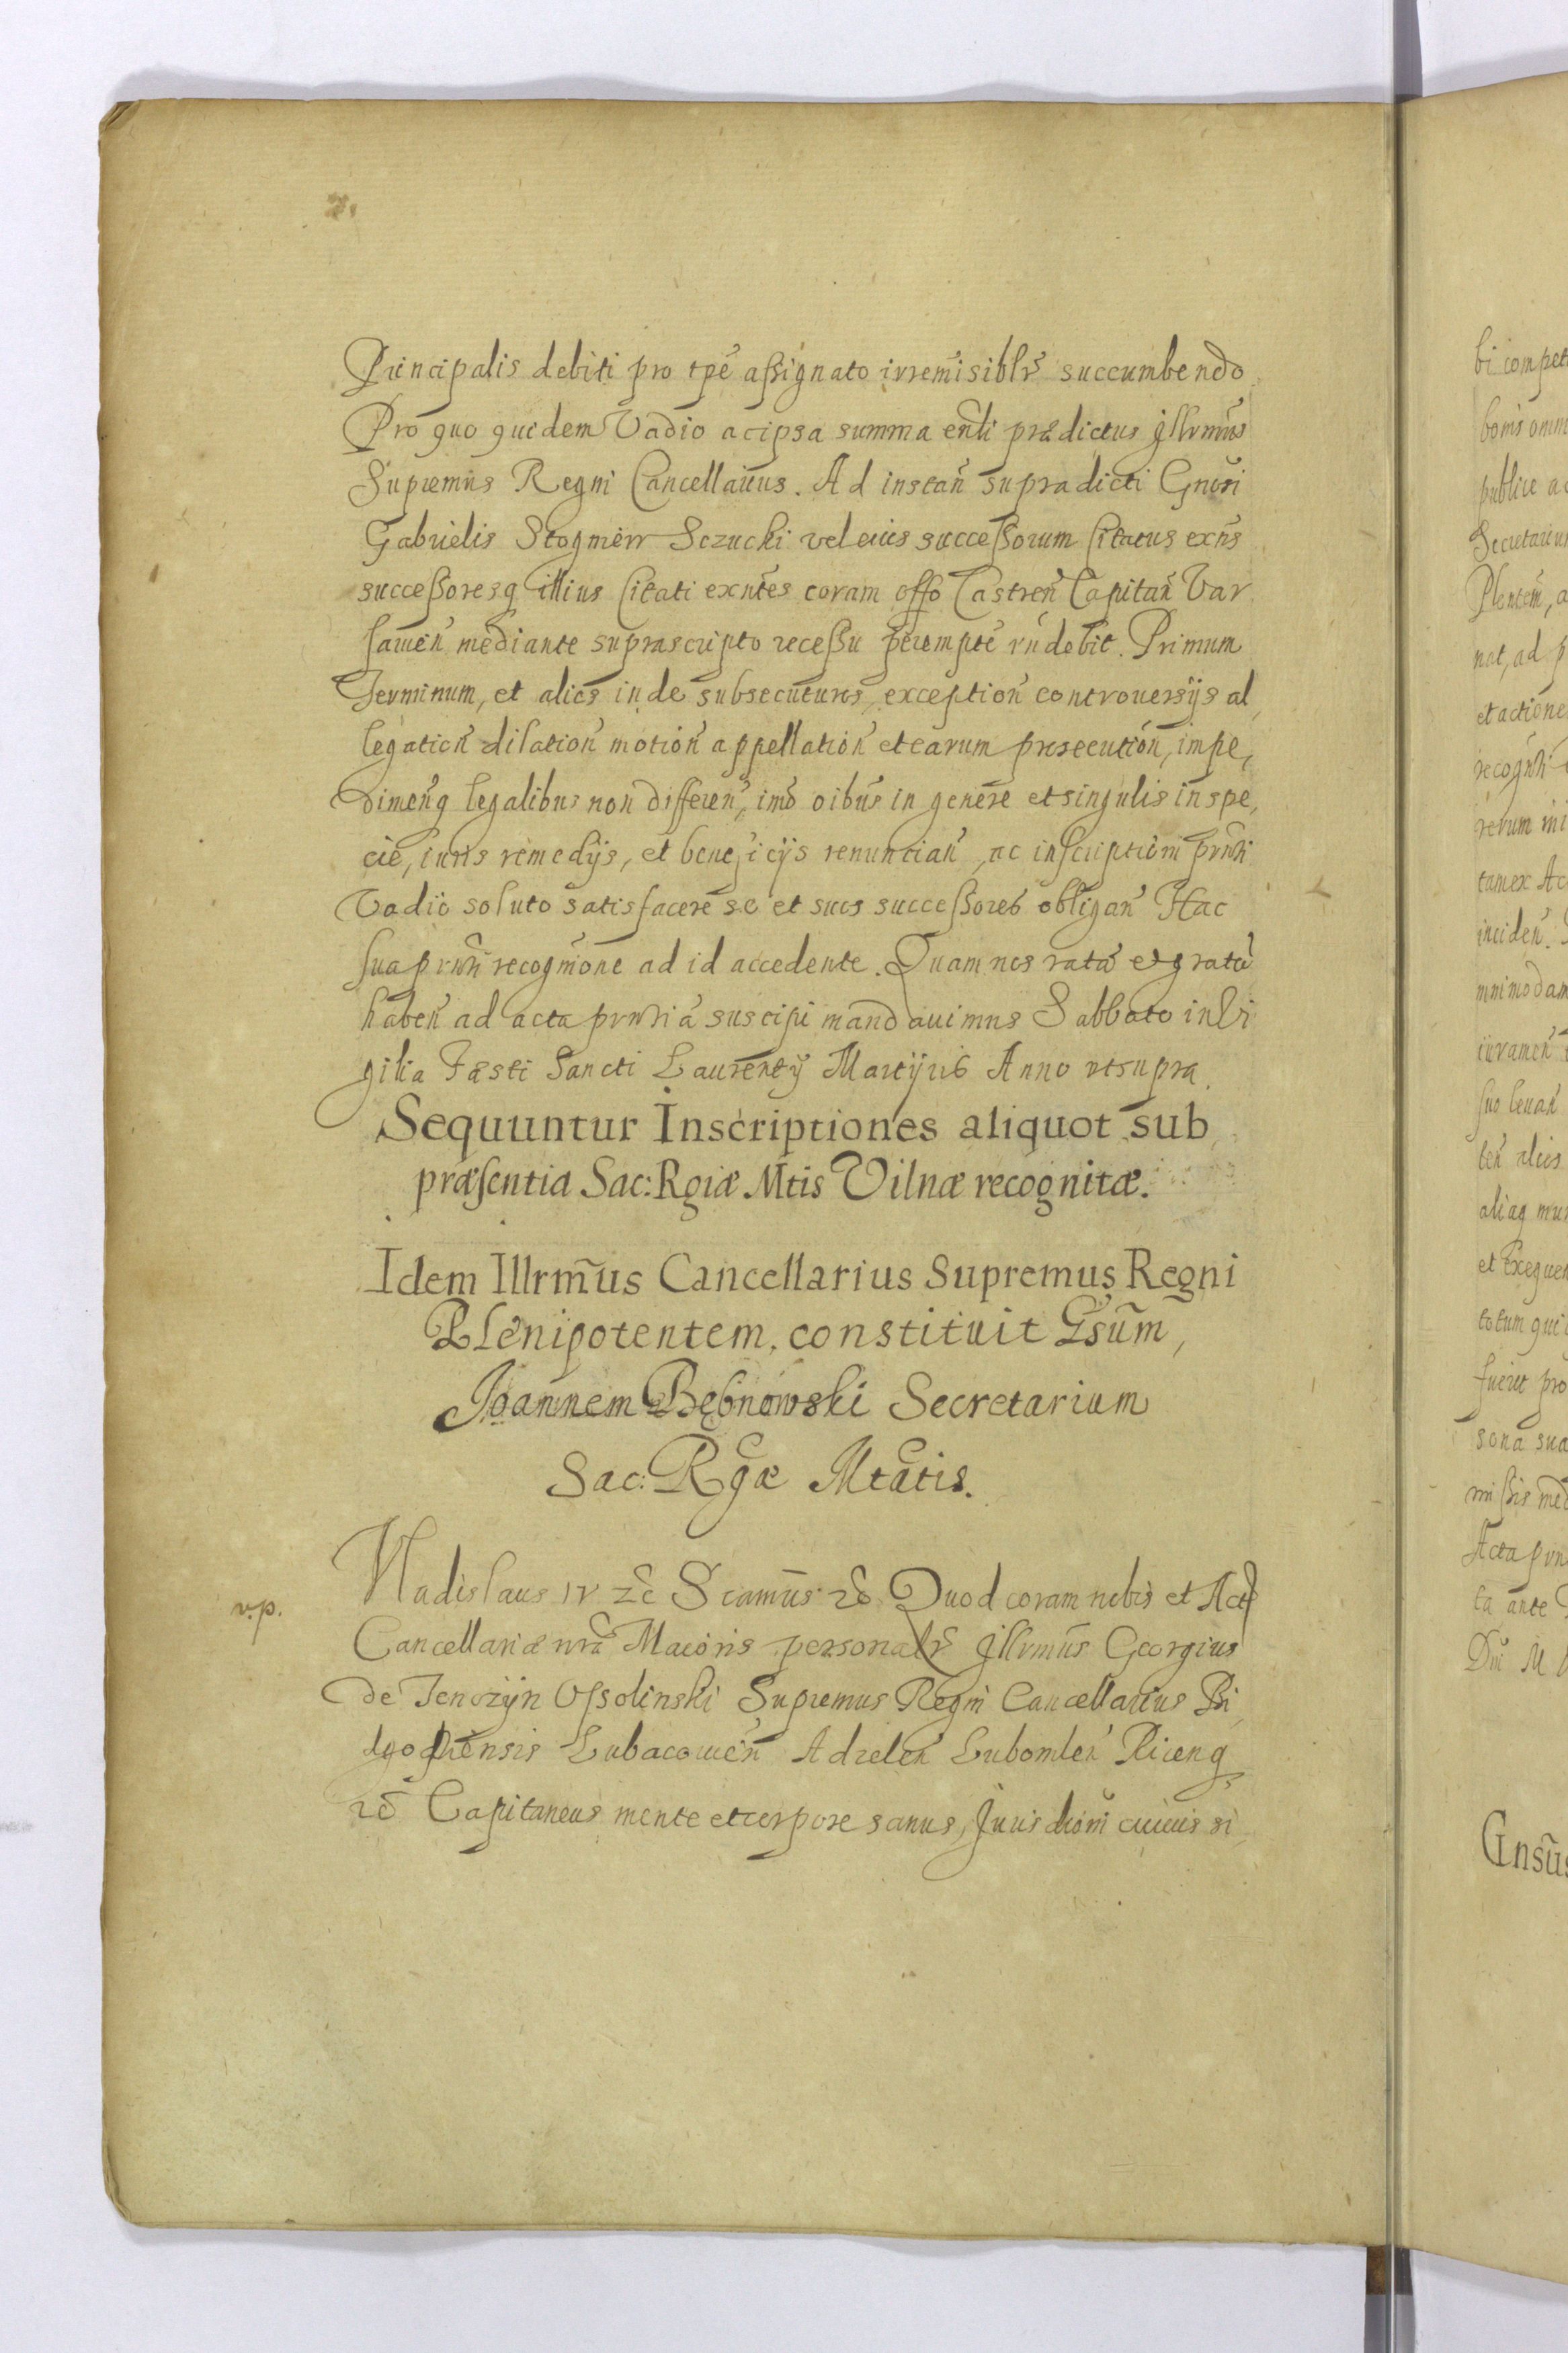 Principalis debiti pro tpe assignato irremisiblr succumbendo
Pro quo quidem Vadio ac ipsa summa enti prædictus Illrmus
Supremus Regni Cancellarius. Ad instan supradicti Gnosi
Gabrielis Stogniew Sczucki vel eius successorum Citatus exns
successoresq illius Citati exntes coram offo Castren Capitan Var
savien mediante suprascripto recessu perempte rndebit. Primum
Terminum, et alios inde subsecuturos, exception controversijs al
legation dilation motion appellation et earum prosecution, impe,
dimenq legalibus non differen, imo oibus in genere et singulis in spe,
cie, iuris remedijs, et beneficijs renuncian, ac inscriptioni prnti
Vadio soluto satisfacere se et suos successores obligan Hac
sua prnti recognitione ad id accedente. Quam nos rata et grata
haben ad acta prntia suscipi mandauimus Sabbato in Vi
gilia Fæsti Sancti Laurentij Martijris Anno vt supra.
Sequuntur Inscriptiones aliquot sub
præsentia Sac: Rgiæ Mtis Vilnæ recognitæ.
Idem Illrmus Cancellarius Supremus Regni
Plenipotentem, constituit Gsum,
Joannem Bębnowski Secretarium
Sac: Rgæ Mtatis.
v.p.
Vladislaus IV zc Scamus. zc Quod coram nobis et Actis
Cancellariæ nra Maioris personalr Illrmus Georgius
de Tenczyn Ossolinski Supremus Regni Cancellarius Bi
dgostiensis Lubacouien Adzelen Lubomlen Ricenq
zc Capitaneus mente et corpore sanus, Jurisdioni cuiuis si
bi compet
bonis omn
publice ac
Secretariu
Plenten, a
nat, ad p
et actione
recognti
rerum
tam ex Ac
inciden.
mnimodam
iuramen
suo leuan
ben alios
aliaq mun
et Exequen
totum qui
fuerit pro
sona sua
missis med
Acta prn
ta ante
Dni M
Gnsus